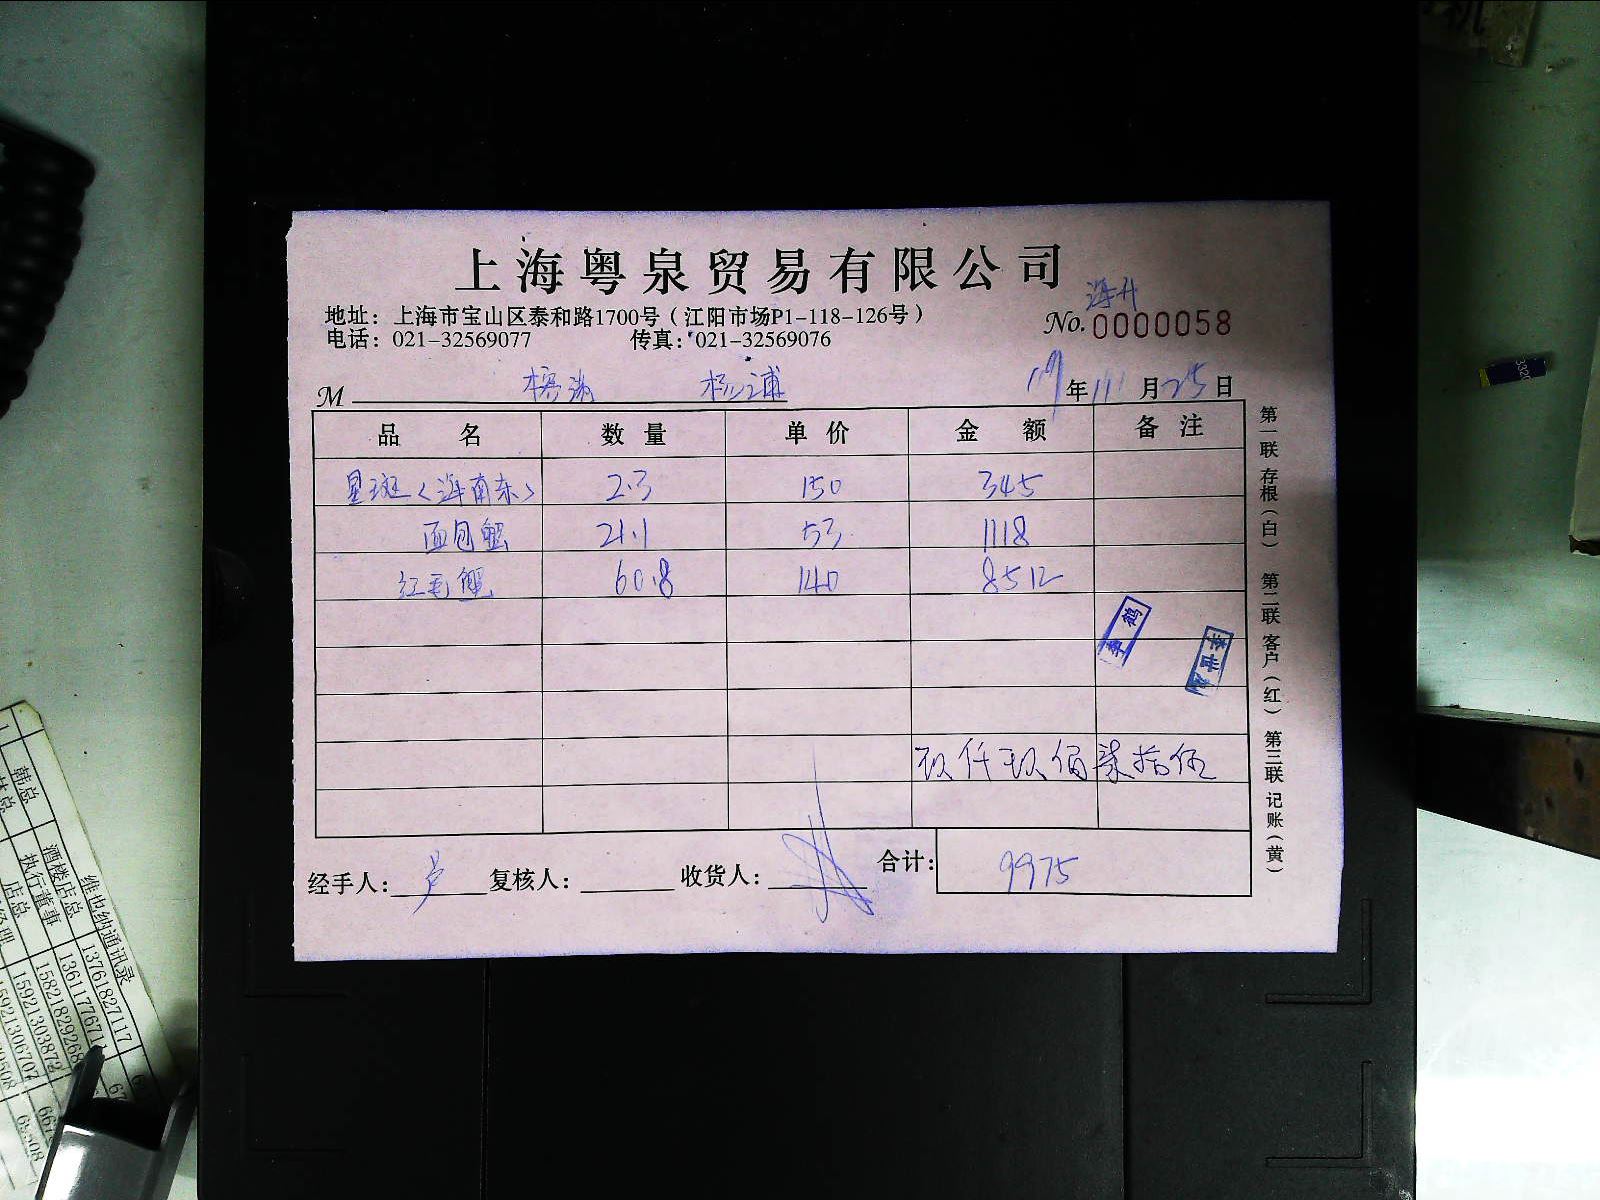 上海粤泉贸易有限公司
地址：上海市宝山区泰和路1700号（江阳市场P1-118-126号）
电话：021-32569077 传真：021-32569076
No.0000058
M 杨浦
年11月25日
品名 数量 单价 金额 备注
星斑<海南东> 2.3 150 345
面包蟹 21.1 53 1118
红毛蟹 60.8 140 8512
玖仟玖佰柒拾伍
经手人： 复核人： 收货人： 合计：9975
第一联 存根（白） 第二联 客户（红） 第三联 记账（黄）
维也纳通讯录
韩总 执行董事 13761827117
酒楼店总 13611776714
店总